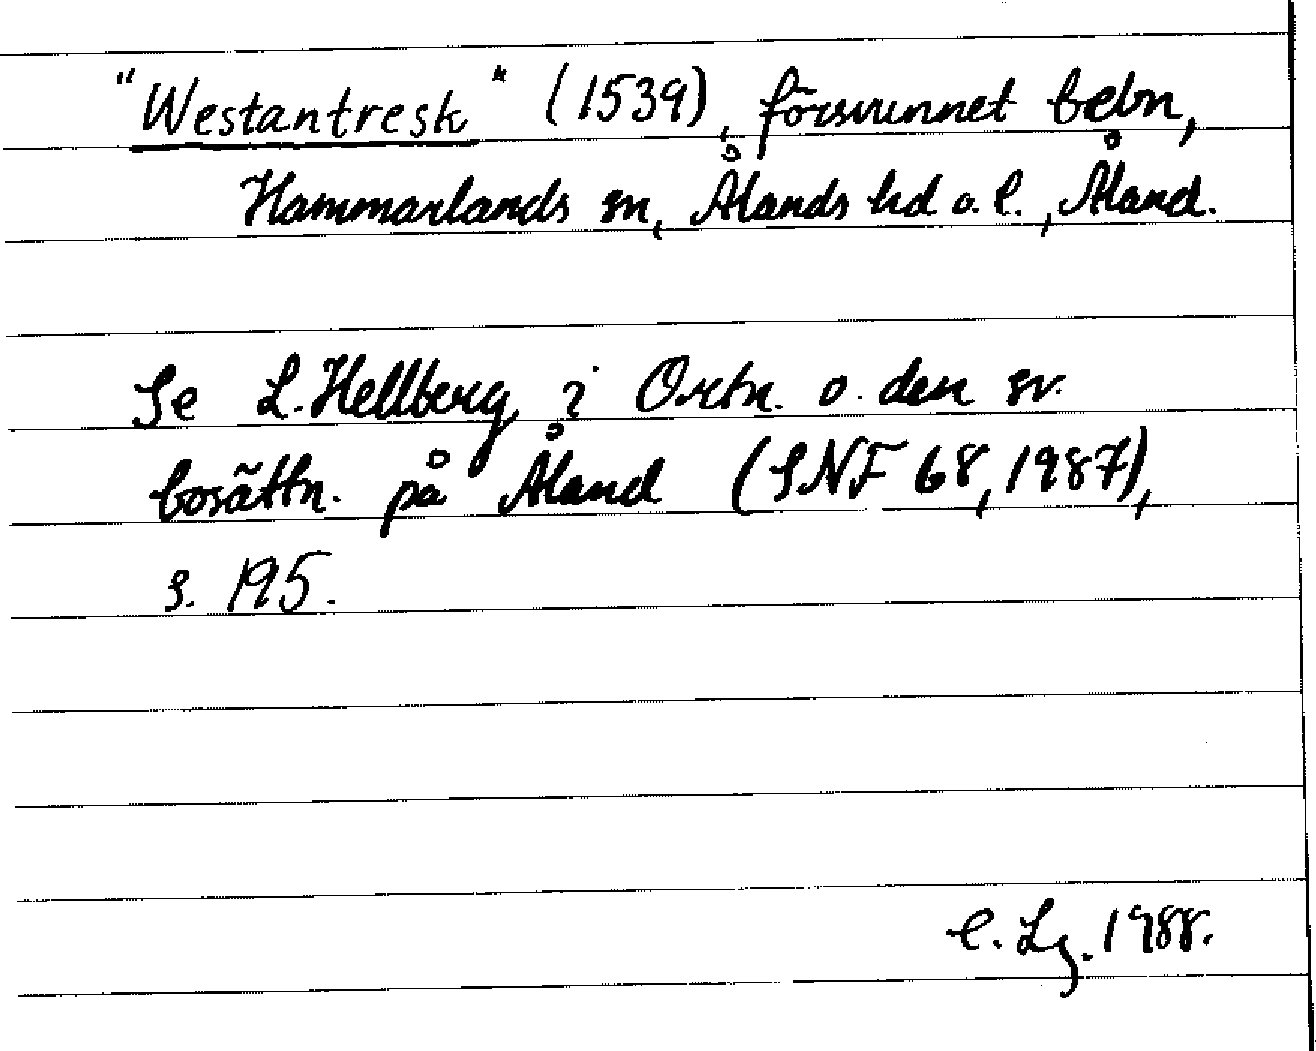 "Westantresk" (1539), försvunnet bebn,
Hammarlands sn, Ålands hd o. l., Åland.
Se L. Hellberg i Ortn. o. den sv.
bosättn. på Åland (SNF 68, 1987),
s. 195.
C. Lg. 1988.